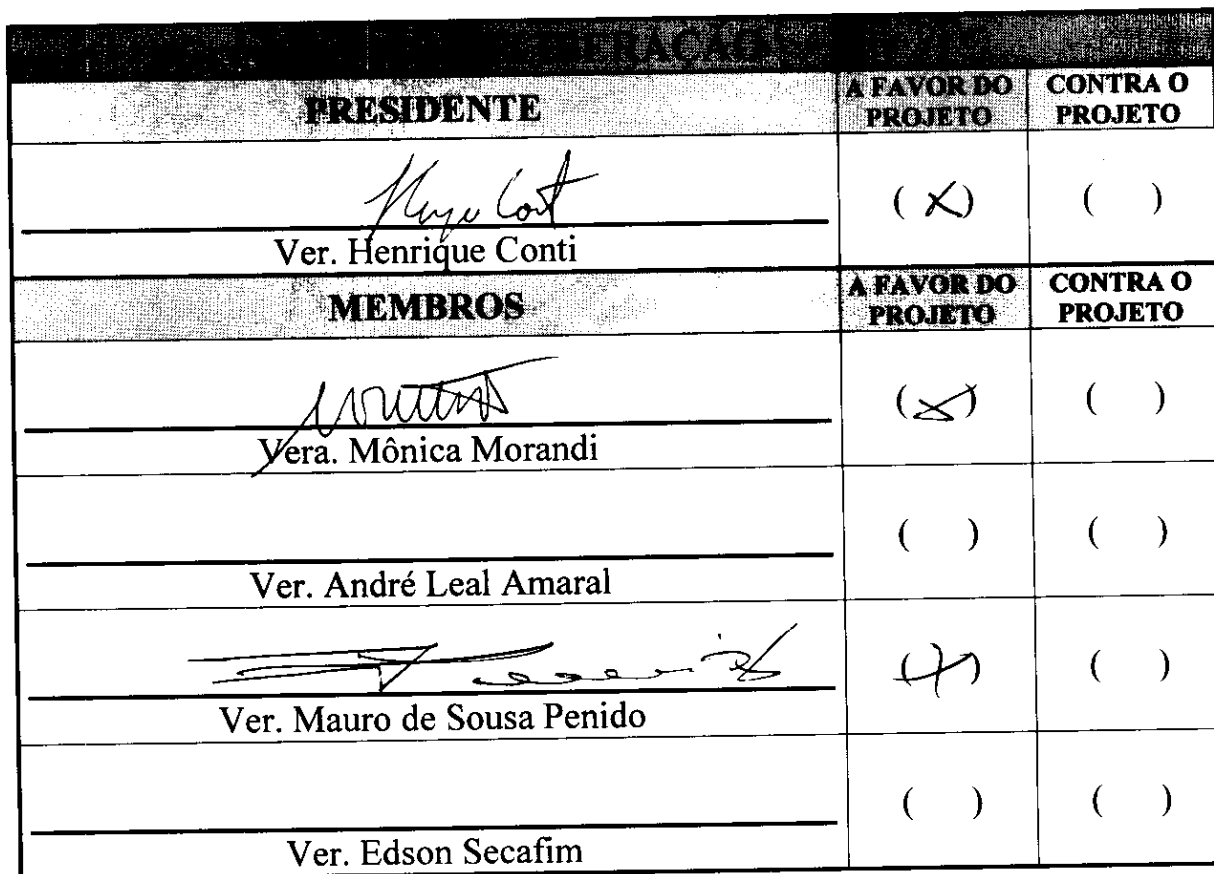 PRESIDENTE
A FAVOR DO PROJETO
CONTRA O PROJETO
( X ) ( )
Ver. Henrique Conti
MEMBROS
A FAVOR DO PROJETO
CONTRA O PROJETO
( X ) ( )
Vera. Mônica Morandi
( ) ( )
Ver. André Leal Amaral
( X ) ( )
Ver. Mauro de Sousa Penido
( ) ( )
Ver. Edson Secafim